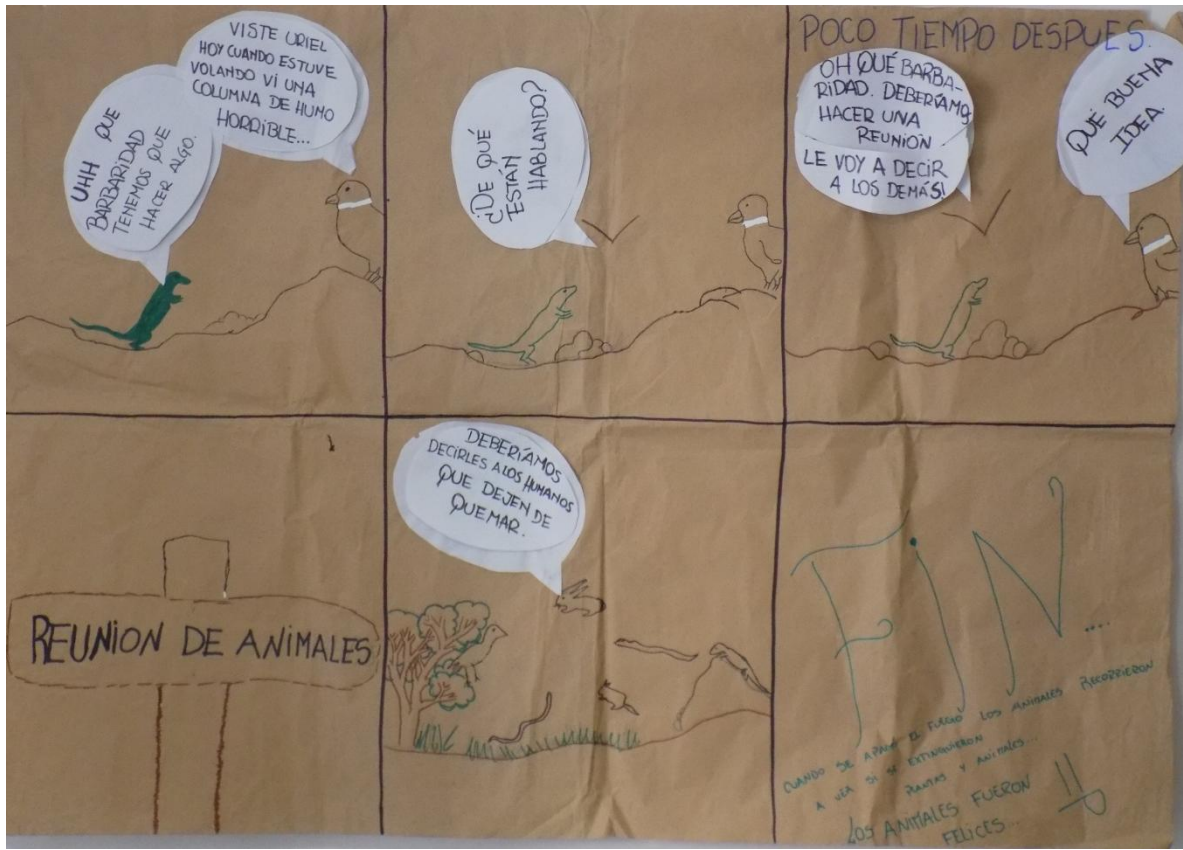 VISTE URIEL
HOY CUANDO ESTUVE
VOLANDO VI UNA
COLUMNA DE HUMO
HORRIBLE...
UHH QUE
BARBARIDAD
TENEMOS QUE
HACER ALGO.
¿DE QUÉ
ESTÁN
HABLANDO?
POCO TIEMPO DESPUES.
OH QUÉ BARBA-
RIDAD. DEBERÍAMOS
HACER UNA
REUNIÓN
LE VOY A DECIR
A LOS DEMÁS!
QUÉ BUENA
IDEA.
REUNION DE ANIMALES
DEBERÍAMOS
DECIRLES A LOS HUMANOS
QUE DEJEN DE
QUEMAR.
FIN....
CUANDO SE APAGÓ EL FUEGO LOS ANIMALES RECORRIERON
A VER SI SE EXTINGUIERON
PLANTAS Y ANIMALES...
LOS ANIMALES FUERON
FELICES...